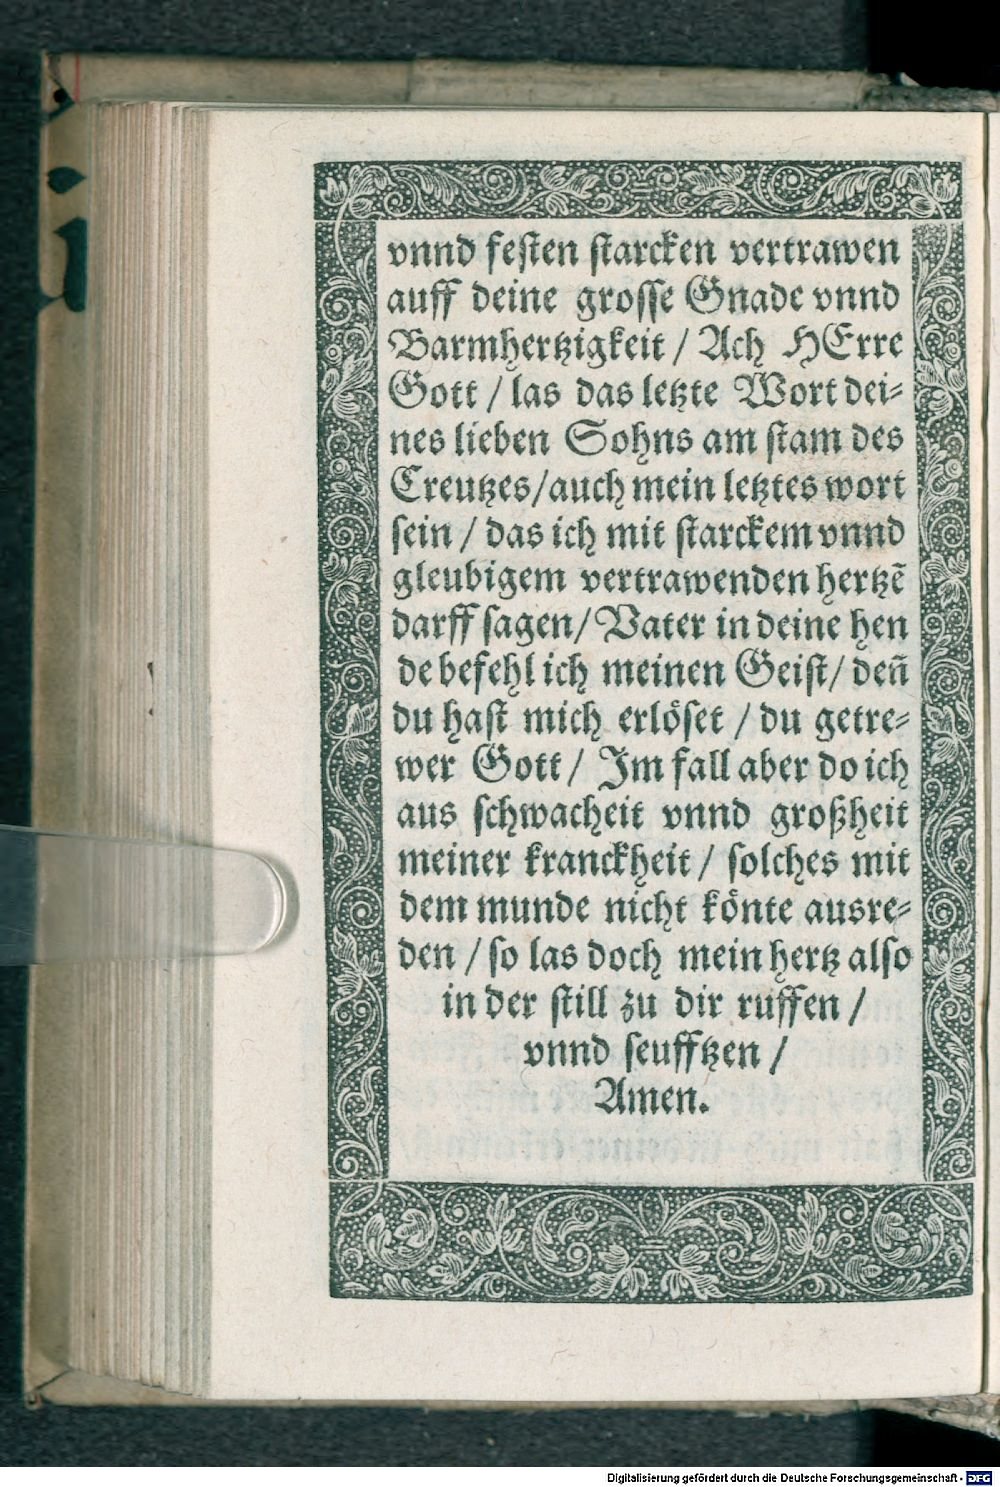 vnnd festen starcken vertrawen
auff deine grosse Gnade vnnd
Barmhertzigkeit / Ach HErre
Gott / las das letzte Wort dei⸗
nes lieben Sohns am stam des
Creutzes/auch mein letztes wort
sein / das ich mit starckem vnnd
gleubigem vertrawenden hertzẽ
darff sagen/ Vater in deine hen
de befehl ich meinen Geist/ deñ
du hast mich erlöset / du getre⸗
wer Gott / Im fall aber do ich
aus schwacheit vnnd großheit
meiner kranckheit / solches mit
dem munde nicht könte ausre⸗
den / so las doch mein hertz also
in der still zu dir ruffen /
vnnd seufftzen /
Amen.
Digitalisierung gefördert durch die Deutsche Forschungsgemeinschaft - DFG